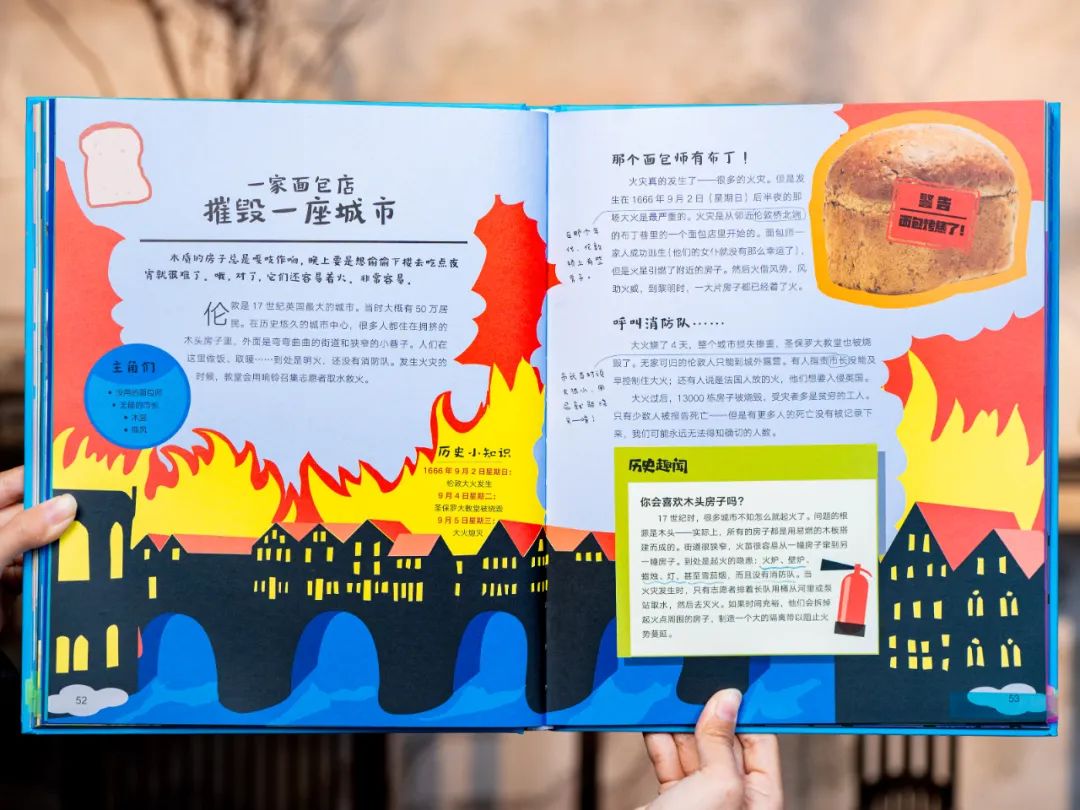 一家面包店
摧毁一座城市
木质的房子总是嘎吱作响，晚上要是想偷偷下楼去吃点夜
宵就很难了。哦，对了，它们还容易着火，非常容易。
伦敦是 17 世纪英国最大的城市。当时大概有 50 万居
民。在历史悠久的城市中心，很多人都住在拥挤的
木头房子里，外面是弯弯曲曲的街道和狭窄的小巷子。人们在
这里做饭、取暖……到处是明火，还没有消防队。发生火灾的
时候，教堂会用响铃召集志愿者取水救火。
主角们
• 没用的面包师
• 无能的市长
• 木屋
• 强风
历史小知识
1666 年 9 月 2 日星期日：
伦敦大火发生
9 月 4 日星期二：
圣保罗大教堂被烧毁
9 月 5 日星期三：
大火熄灭
52
那个面包师有布丁！
火灾真的发生了——很多的火灾。但是发
生在 1666 年 9 月 2 日（星期日）后半夜的那
场大火是最严重的。火灾是从邻近伦敦桥北端
的布丁巷里的一个面包店里开始的。面包师一
家人成功逃生（他们的女仆就没有那么幸运了），
但是火星引燃了附近的房子。然后火借风势，风
助火威，到黎明时，一大片房子都已经着了火。
在那个年
代，伦敦
桥上有些
房子。
警告
面包烤焦了！
呼叫消防队……
大火烧了 4 天，整个城市损失惨重，圣保罗大教堂也被烧
毁了。无家可归的伦敦人只能到城外露营。有人指责市长没能及
早控制住大火；还有人说是法国人放的火，他们想要入侵英国。
大火过后，13000 栋房子被烧毁，受灾者多是贫穷的工人。
只有少数人被报告死亡——但是有更多人的死亡没有被记录下
来，我们可能永远无法得知确切的人数。
历史趣闻
你会喜欢木头房子吗？
17 世纪时，很多城市不知怎么就起火了。问题的根
源是木头——实际上，所有的房子都是用易燃的木板搭
建而成的。街道很狭窄，火苗很容易从一幢房子窜到另
一幢房子。到处是起火的隐患：火炉、壁炉、
蜡烛、灯，甚至雪茄烟，而且没有消防队。当
火灾发生时，只有志愿者排着长队用桶从河里或泵
站取水，然后去灭火。如果时间充裕，他们会拆掉
起火点周围的房子，制造一个大的隔离带以阻止火
势蔓延。
53